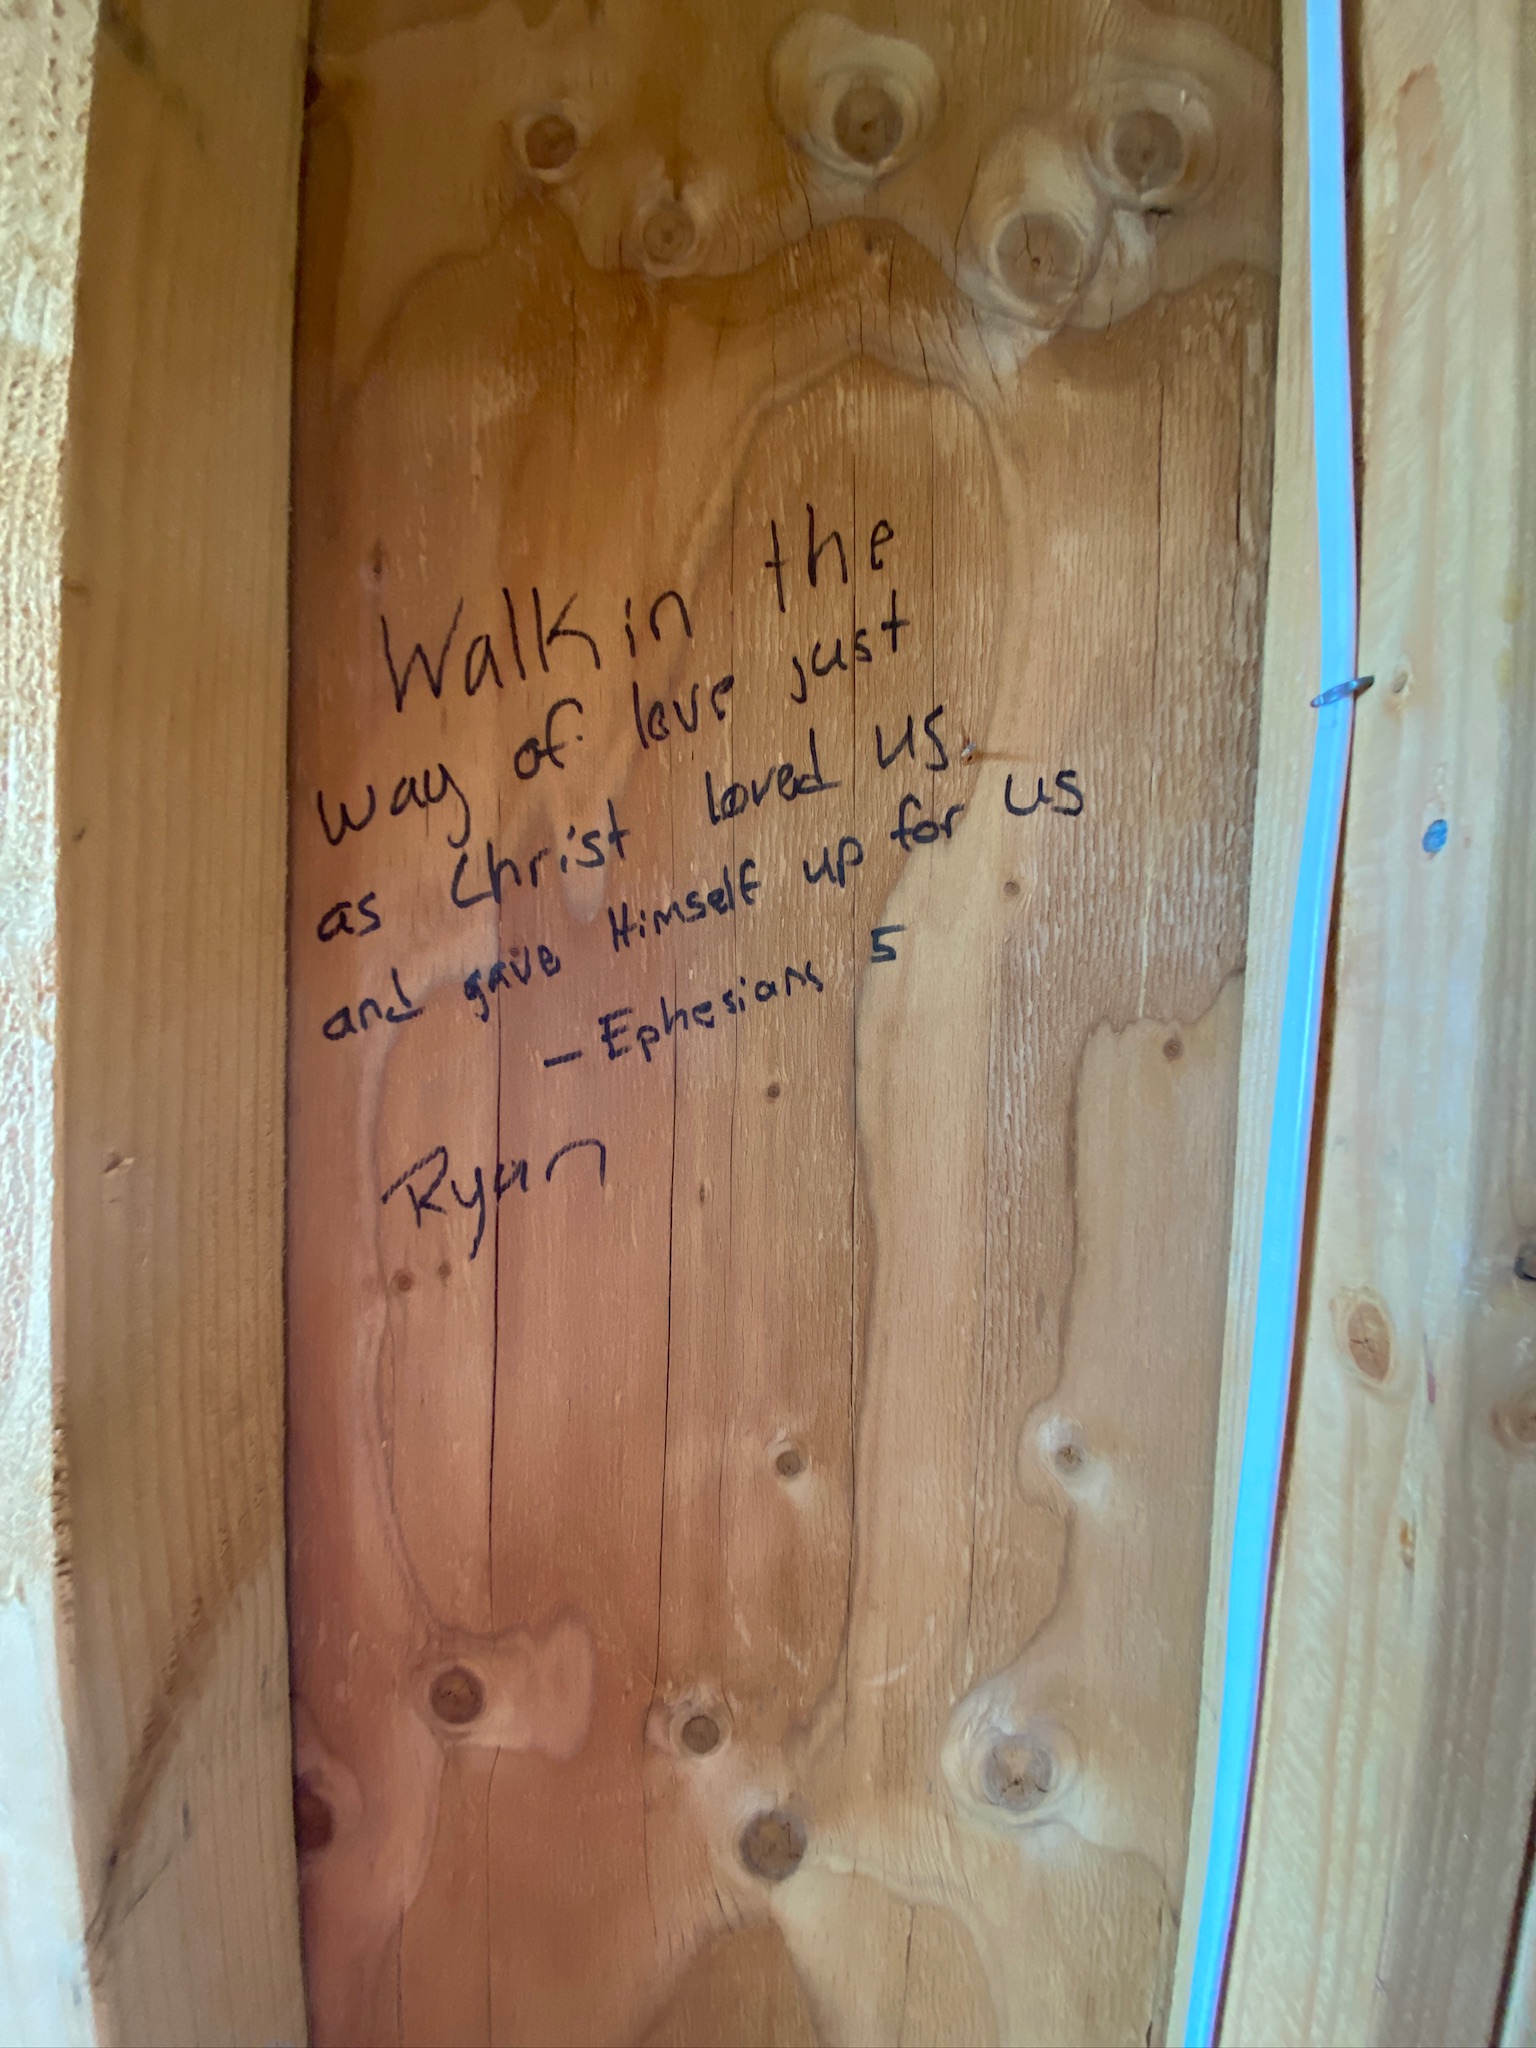 Walk in the
way of love just
as Christ loved us
and gave Himself up for us
- Ephesians 5
Ryan